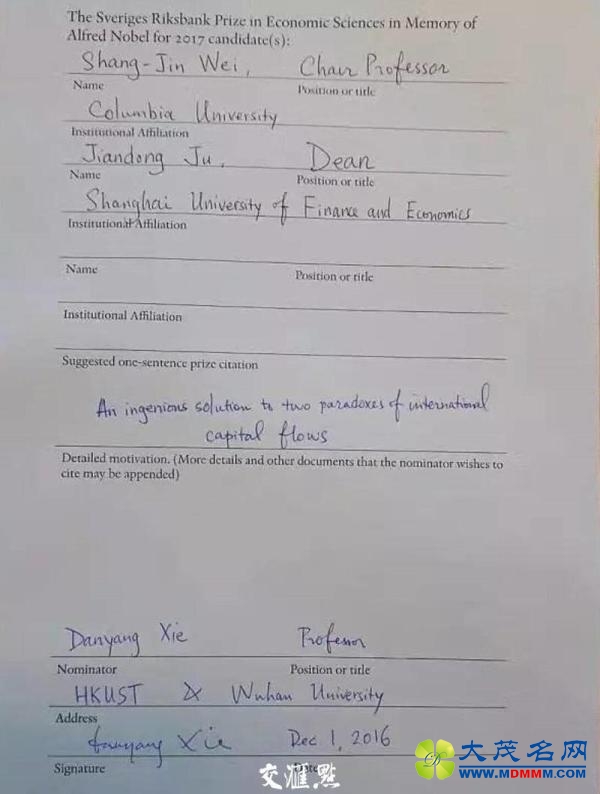 The Sveriges Riksbank Prize in Economic Sciences in Memory of
Alfred Nobel for 2017 candidate(s):
Shang-Jin Wei, Chair Professor
Name Position or title
Columbia University
Institutional Affiliation
Jiandong Ju, Dean
Name Position or title
Shanghai University of Finance and Economics
Institutional Affiliation
Name Position or title
Institutional Affiliation
Suggested one-sentence prize citation
An ingenious solution to two paradoxes of international
capital flows
Detailed motivation. (More details and other documents that the nominator wishes to
cite may be appended)
Danyang Xie Professor
Nominator Position or title
HKUST & Wuhan University
Address
Danyang Xie Dec 1, 2016
Signature
交汇点
大茂名网
WWW.MDMMM.COM